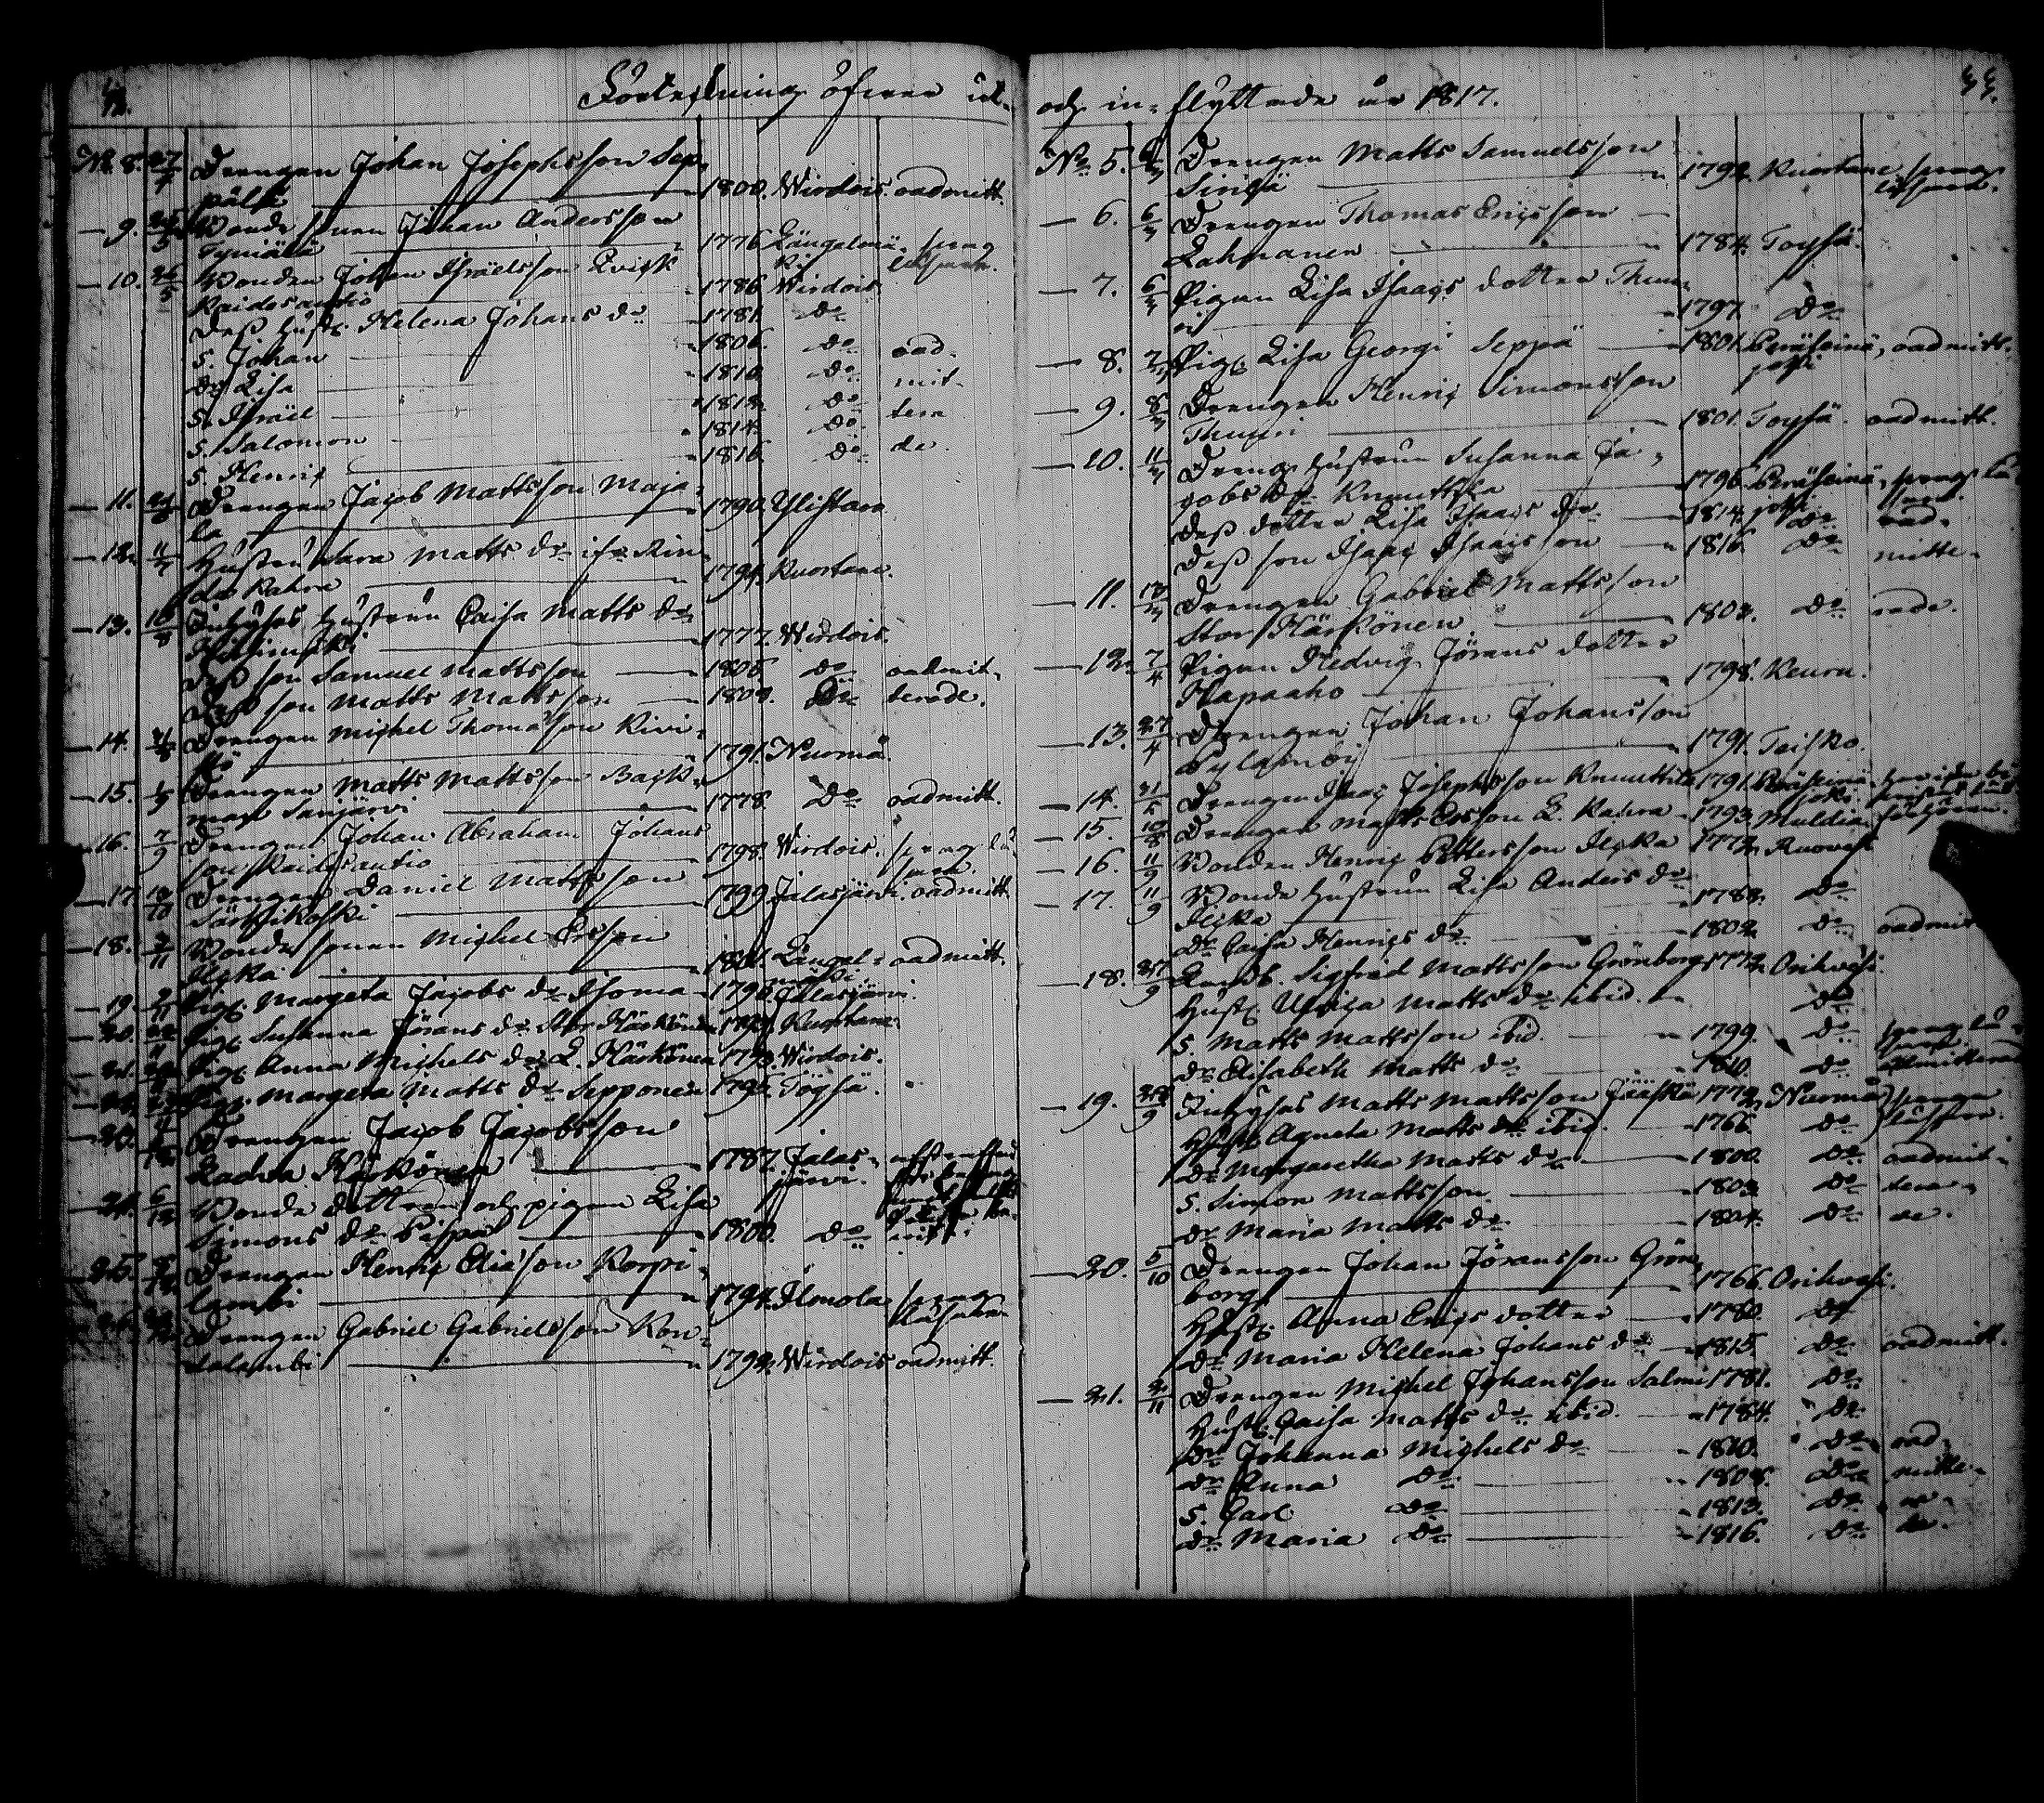 Förteckning öfver ut-
No 8. 27/4 Drengen Johan Josephsson Sep-
pälä 1800. Wirdois. oadmitt.
— 9. 25/5 Bonde sonen Johan Andersson
1776 Längelmä- svag
ki läsare.
— 10. 26/5 Bonden Johan Israelsson Qvick
Kaidesautio 1786 Wirdois
Dess Hust. Helena Johans dr 1781. Do
S. Johan 1806. Do oad-
Dr Lisa 1810 Do mit-
S. Israel 1812 Do tera
S. Salomon 1814. Do de.
S. Henric 1816. Do
— 11. Drengen Jacob Mattsson Maja-
la 1790. Ylistaro
— 12. 11/7 Hustru Sara Matts dr
Kahra 1794. Kuortane.
— 13. Inhyses Hustrun Caisa Matts dr
1777. Wirdois.
Dess son Samuel Mattsson 1805. Do oadmit-
Dess son Matts Mattsson 1809. Do terade.
— 14. Drengen Michel Thomasson Kivi-
1791. Nurmo.
— 15. Drengen Matts Mattsson Back-
man Sarjärvi 1778. Do oadmitt.
— 16. 7/9 Drengen Johan Abraham Johans
son Kaidesautio 1798. Wirdois. svag lä-
sare.
— 17. Drengen Daniel Mattsson
Särkikoski 1799 Jalasjärvi. oadmitt.
— 18. Bonde sonen Michel Ersson
Ilkka 1801. Längel- oadmitt.
mäki.
— 19. Pig. Margeta Jacobs dr Isoma 1796 Jalasjärvi.
— 20. Pig. Susanna Jörans dr Stor Härkönen Kuortane.
— 21. Pig. Anna Michels dr L. Härkönen 1793. Wirdois.
— 22. Pig. Margeta Matts dr Sepponen 1795. Töysä.
— 23. Drengen Jacob Jacobsson
Härkönen 1787. Jalas-
järvi.
— 24. 6/12 Bonde dottren och pigan Lisa
Simons dr Pispa 1800. Do
— 25. Drengen Henric Eliasson Korpi-
lambi 1794. Ilmola svag
läsare
— 26. Drengen Gabriel Gabrielsson Kon-
dolambi 1799. Wirdois oadmitt.
och in-flyttade år 1817.
No 5. Drengen Matts Samuelsson
1792. Kuortane, svag
läsare.
— 6. 6/3 Drengen Thomas Ericsson
Lahnanen 1784. Toysä.
— 7. 6/3 Pigan Lisa Isaacs dotter Thuu-
ri 1797. Do
— 8. Pig. Lisa Georgi Seppä 1801. Peräseinä- oadmitt.
joki
— 9. 8/3 Drengen Henric Simonsson
Thuuri 1801. Toysä. oadmitt.
— 10. 11/3 Drengs hustrun Susanna Ja-
cobs dr Knuuttila 1796. Peräseinä- svag lä-
joki
Dess dotter Lisa Isaacs dr 1814. Do oad-
Dess son Isaac Isaacsson 1816 Do mitte-
— 11. Drengen Gabriel Mattsson
Stor Härkönen 1802. Do rade.
— 12. 7/4 Pigan Hedvig Jörans dotter
Hapaaho 1798. Keuru.
— 13. 27/4 Drengen Johan Johansson
1791. Teisko.
— 14. Drengen Isaac Josephsson Knuuttila 1791. Peräseinä-
joki.
— 15. Drengen Matts Ersson L. Kahra 1793. Multia
— 16. 11/9 Bonden Henric Pettersson Ilkka 1772. Ruovesi
— 17. 11/9 Bonde hustrun Lisa Anders dr
Ilkka 1788. Do
Dr Caisa Henrics dr 1802. Do oadmit
— 18. Landb. Sigfrid Mattsson Grönborg 1772. Orihvesi.
Hust. Ulrica Matts dr ibid. Do
S. Matts Mattsson ibid. 1799. Do svag lä-
Dr Elisabeth Matts dr 1810. Do
— 19. Inhyses Matts Mattsson Jääskä 1772. Nurmo
Hust. Agneta Matts dr ibid. 1766 Do
Dr Margaretha Matts dr 1800. Do oadmit-
S. Simon Mattsson 1803. Do tera-
Dr Maria Matts dr 1804. Do de.
— 20. 5/10 Drengen Johan Jöransson Grön-
borg 1766. Orihvesi.
Hust. Anna Erics dotter 1780. Do
Dr Maria Helena Johans dr 1815. Do oadmitt.
— 21. Drengen Michel Johansson Salmi 1781. Do
Hust. Caisa Matts dr ibid. 1784. Do
Dr Johanna Michels dr 1810. Do oad-
Dr Anna Do 1808. Do mitte-
S. Carl Do 1813. Do ra-
Dr Maria Do 1816. Do de.